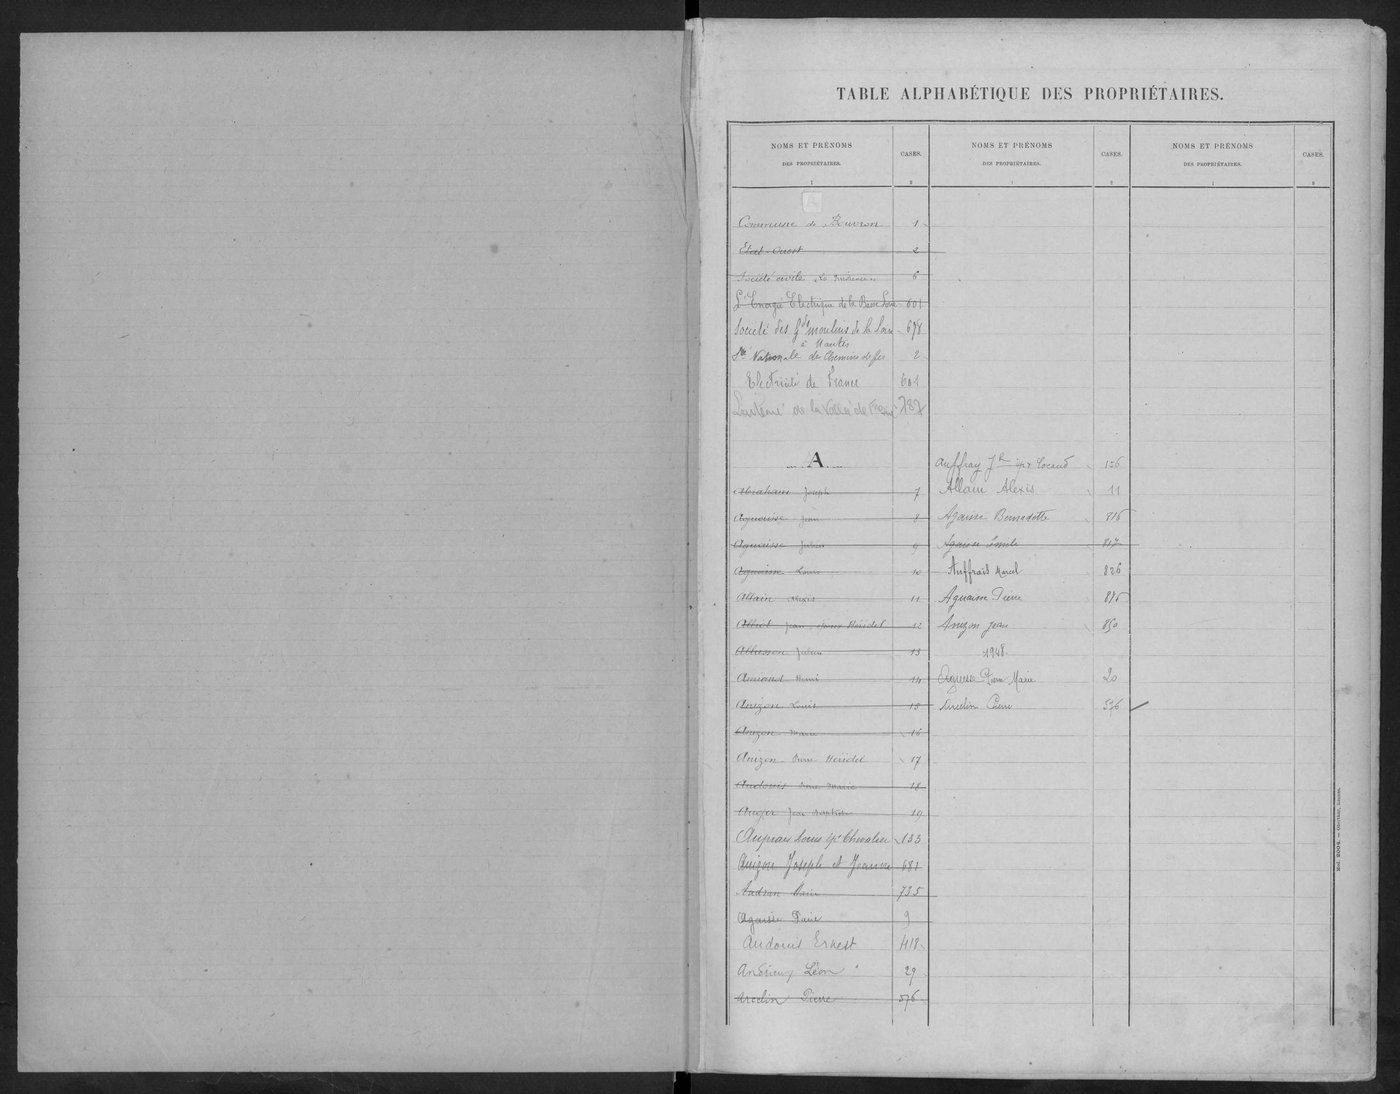 TABLE ALPHABÉTIQUE DES PROPRIÉTAIRES.
NOMS ET PRÉNOMS DES PROPRIÉTAIRES. CASES.
NOMS ET PRÉNOMS DES PROPRIÉTAIRES. CASES.
NOMS ET PRÉNOMS DES PROPRIÉTAIRES. CASES.
1 2 1 2 1 2
A
Commune de Bouvron 1
Etat-Ouest 2
Société civile 6
L'Energie Electrique de la Basse Loire 601
Société des Gds moulins de la Loire 678
à Nantes
Sté Nationale de Chemins de fer 2
Electricité de France 601
de la 787
A
Abraham Joseph 7
Aguaisse Jean 8
Aguaisse Julien 9
Aguaisse Louis 10
Allain Alexis 11
Jean 12
Julien 13
Amiand Henri 14
Anizon Louis 15
Anizon Marie 16
Anizon Pierre Héridel 17
Audouis Marie 18
Auger Jean Baptiste 19
Louis Chevalier 133
Anizon Joseph et Jeanne 681
735
Agaisse Pierre 9
Audouis Ernest 418
Andrieux Léon 29
Arcelin Pierre 576
Auffray Jh Cocaud 156
Allain Alexis 11
Agaisse Bernadette 816
Agaisse Emile 817
Auffrais Marcel 826
Aguaisse Pierre 875
Anizon Jean 850
1948
Pierre Marie 20
Arcelin Pierre 576
Mod. 2004. — Oberthur, Rennes.